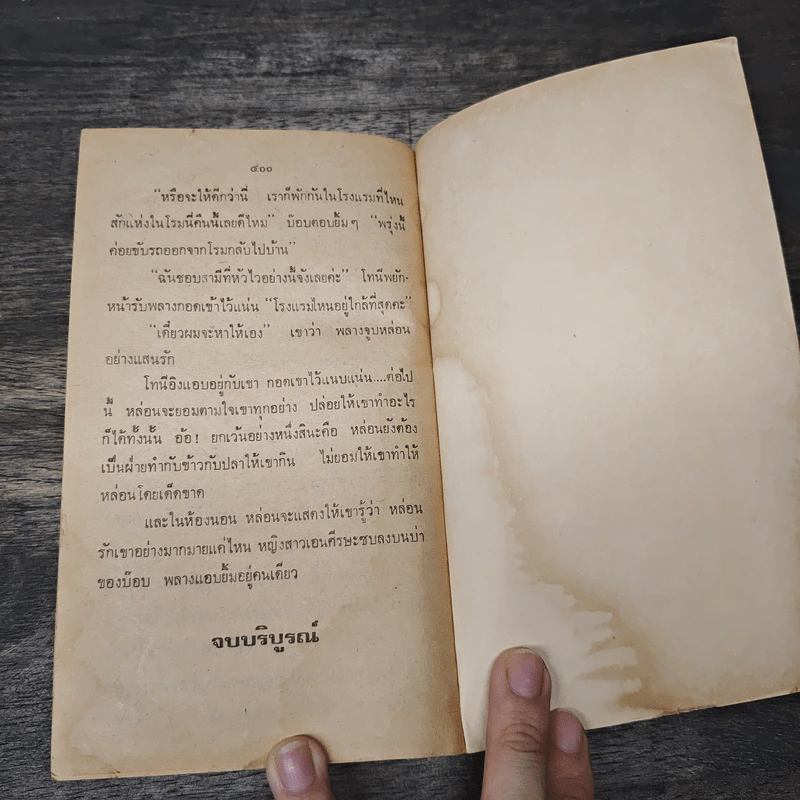 ๕๐๐
“หรือจะให้ดีกว่านี้ เราก็พักกันในโรงแรมที่ไหน
สักแห่งในโรมนี่คืนนี้เลยดีไหม” บ๊อบตอบยิ้มๆ “พรุ่งนี้
ค่อยขับรถออกจากโรมกลับไปบ้าน”
“ฉันชอบสามีที่หัวไวอย่างนี้จังเลยค่ะ” โทนีพยัก-
หน้ารับพลางกอดเข้าไว้แน่น “โรงแรมไหนอยู่ใกล้ที่สุดคะ”
“เดี๋ยวผมจะหาให้เอง” เขาว่า พลางจูบหล่อน
อย่างแสนรัก
โทนีอิงแอบอยู่กับเขา กอดเขาไว้แนบแน่น....ต่อไป
นี้ หล่อนจะยอมตามใจเขาทุกอย่าง ปล่อยให้เขาทำอะไร
ก็ได้ทั้งนั้น อ้อ! ยกเว้นอย่างหนึ่งสินะคือ หล่อนยังต้อง
เป็นฝ่ายทำกับข้าวกับปลาให้เขากิน ไม่ยอมให้เขาทำให้
หล่อนโดยเด็ดขาด
และในห้องนอน หล่อนจะแสดงให้เขารู้ว่า หล่อน
รักเขาอย่างมากมายแค่ไหน หญิงสาวเอนศีรษะซบลงบนบ่า
ของบ๊อบ พลางแอบยิ้มอยู่คนเดียว
จบบริบูรณ์